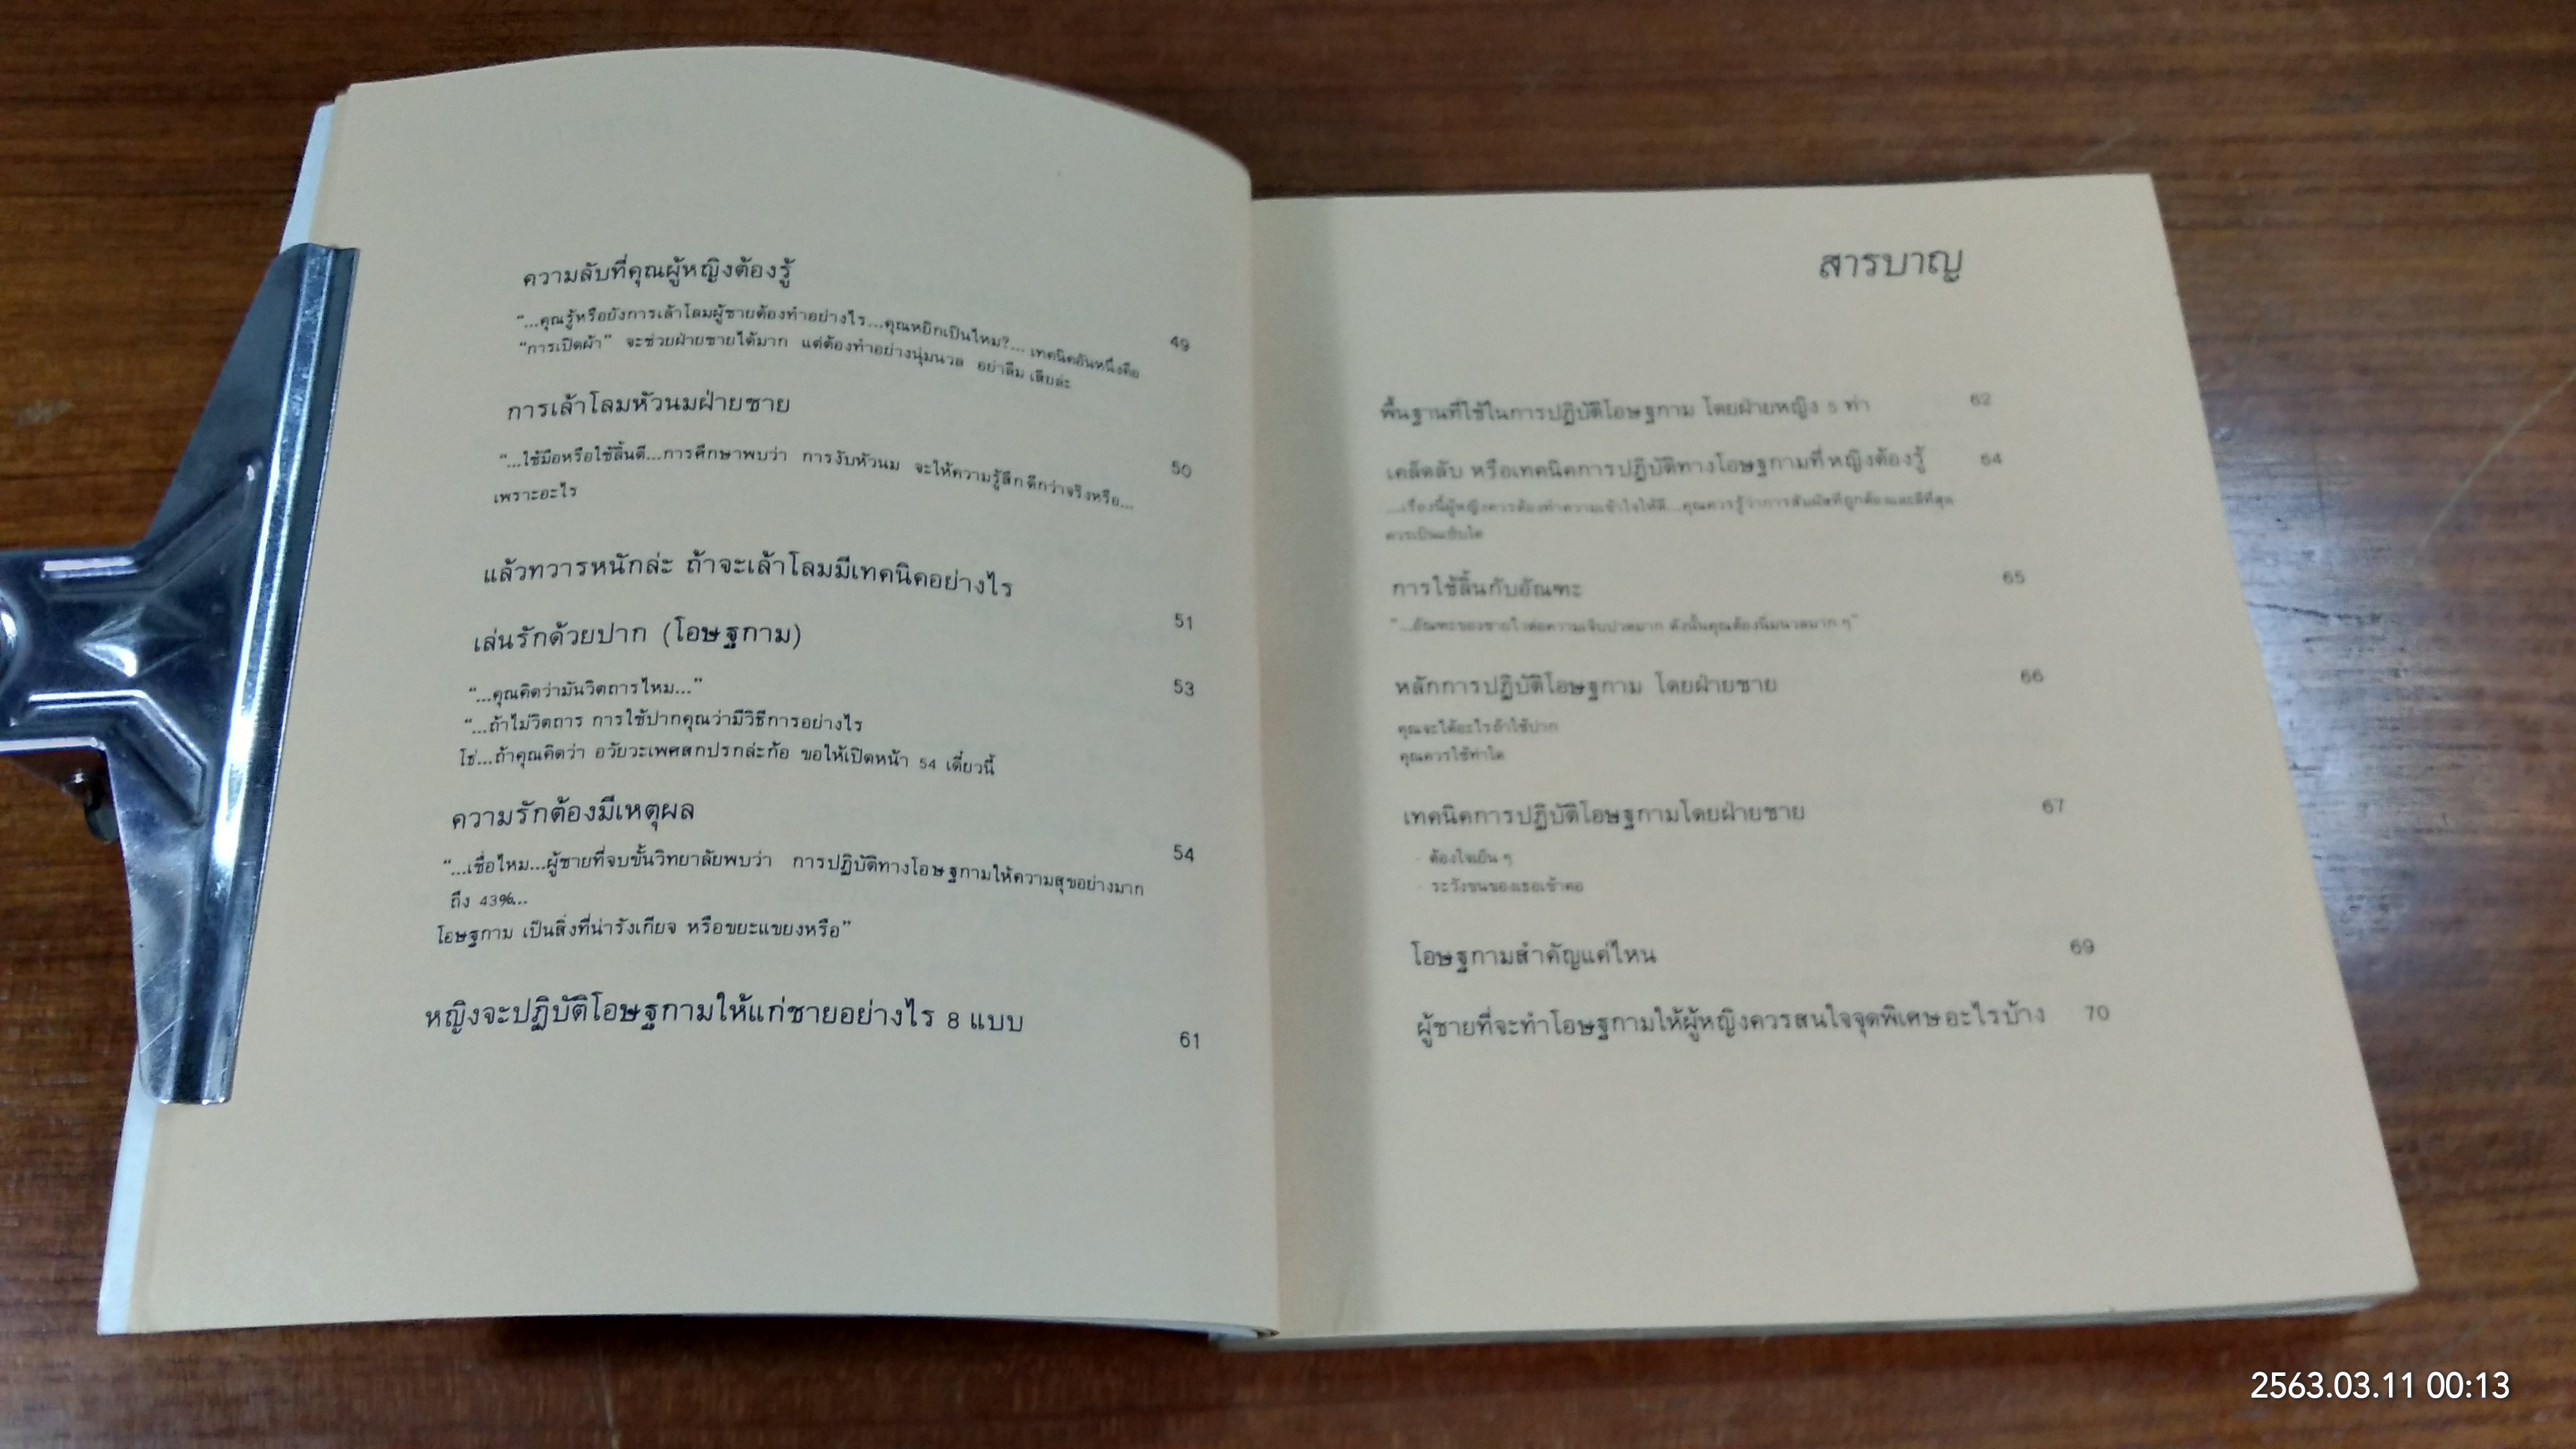 ความลับที่คุณผู้หญิงต้องรู้
“...คุณรู้หรือยังการเล้าโลมผู้ชายต้องทำอย่างไร...คุณหยิกเป็นไหม?... เทคนิคอันหนึ่งคือ 49
“การเปิดผ้า” จะช่วยฝ่ายชายได้มาก แต่ต้องทำอย่างนุ่มนวล อย่าลืมเสียล่ะ
การเล้าโลมหัวนมฝ่ายชาย
“...ใช้มือหรือใช้ลิ้นดี...การศึกษาพบว่า การงับหัวนม จะให้ความรู้สึกดีกว่าจริงหรือ... 50
เพราะอะไร
แล้วทวารหนักล่ะ ถ้าจะเล้าโลมมีเทคนิคอย่างไร 51
เล่นรักด้วยปาก (โอษฐกาม)
“...คุณคิดว่ามันวิตถารไหม...” 53
“...ถ้าไม่วิตถาร การใช้ปากคุณว่ามีวิธีการอย่างไร
โช่...ถ้าคุณคิดว่า อวัยวะเพศสกปรกล่ะก้อ ขอให้เปิดหน้า 54 เดี๋ยวนี้
ความรักต้องมีเหตุผล
“...เชื่อไหม...ผู้ชายที่จบขั้นวิทยาลัยพบว่า การปฏิบัติทางโอษฐกามให้ความสุขอย่างมาก 54
ถึง 43%...
โอษฐกาม เป็นสิ่งที่น่ารังเกียจ หรือขยะแขยงหรือ”
หญิงจะปฏิบัติโอษฐกามให้แก่ชายอย่างไร 8 แบบ 61
สารบาญ
พื้นฐานที่ใช้ในการปฏิบัติโอษฐกาม โดยฝ่ายหญิง 5 ท่า 62
เคล็ดลับ หรือเทคนิคการปฏิบัติทางโอษฐกามที่หญิงต้องรู้ 64
...เรื่องนี้ผู้หญิงควรต้องทำความเข้าใจให้ดี...คุณควรรู้ว่าการสัมผัสที่ถูกต้องและดีที่สุด
ควรเป็นเช่นใด
การใช้ลิ้นกับอัณฑะ 65
“...อัณฑะของชายไวต่อความเจ็บปวดมาก ดังนั้นคุณต้องนิ่มนวลมาก ๆ”
หลักการปฏิบัติโอษฐกาม โดยฝ่ายชาย 66
คุณจะได้อะไรถ้าใช้ปาก
คุณควรใช้ท่าใด
เทคนิคการปฏิบัติโอษฐกามโดยฝ่ายชาย 67
- ต้องใจเย็น ๆ
- ระวังขนของเธอเข้าคอ
โอษฐกามสำคัญแค่ไหน 69
ผู้ชายที่จะทำโอษฐกามให้ผู้หญิงควรสนใจจุดพิเศษอะไรบ้าง 70
2563.03.11 00:13